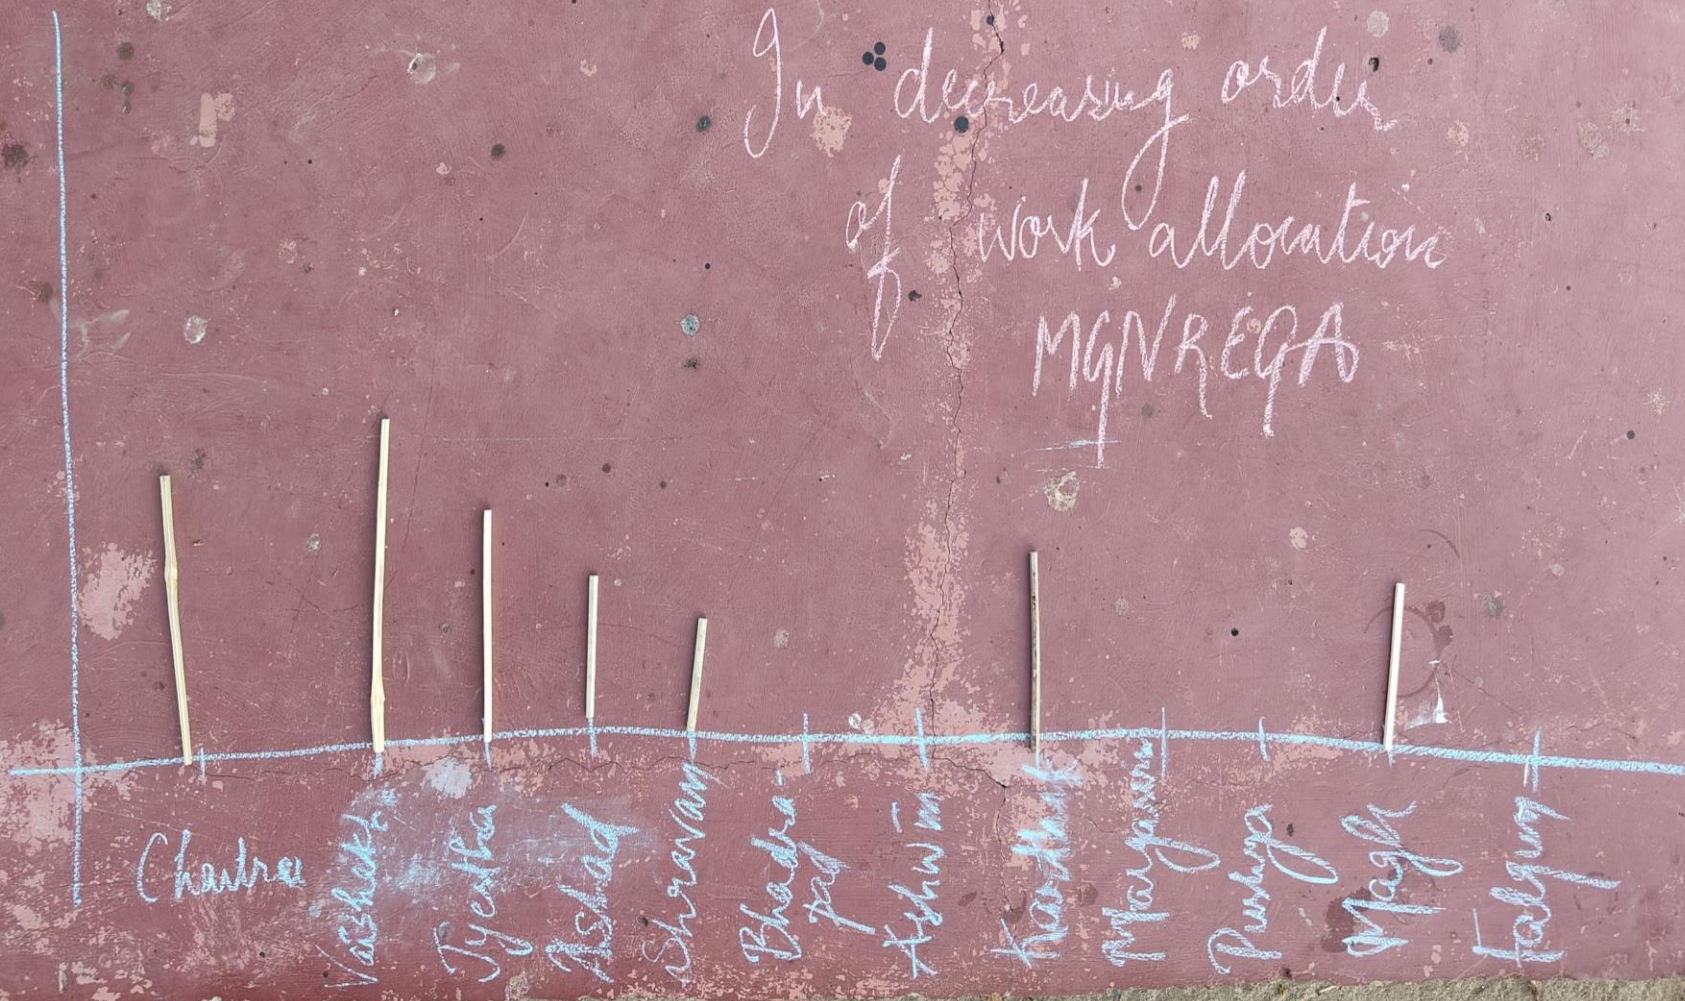 In decreasing order
of work allocation
MGNREGA
Chaitra
Vaishakh
Jyestha
Ashad
Shravan
Bhadra-
pad
Ashwin
Karthik
Pushya
Magh
Falgun